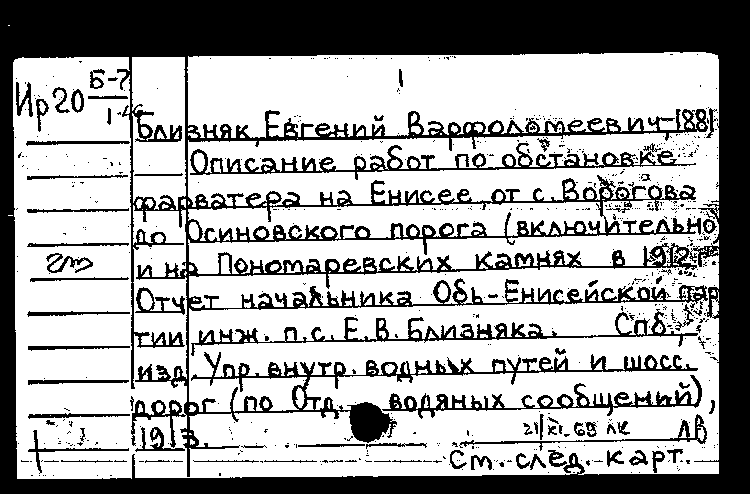 1
Ир20 Б-7
1-46
Близняк, Евгений Варфоломеевич, 1881
Описание работ по обстановке
фарватера на Енисее, от с. Ворогова
до Осиновского порога (включительно)
и на Пономаревских камнях в 1912 г.
Отчет начальника Обь-Енисейской пар
тии инж. п.с. Е.В. Близняка. Спб.,
изд. Упр. внутр. водных путей и шосс.
дорог (по Отд. водяных сообщений),
1913.
21/XI.69 ЛК ЛВ
См. след. карт.